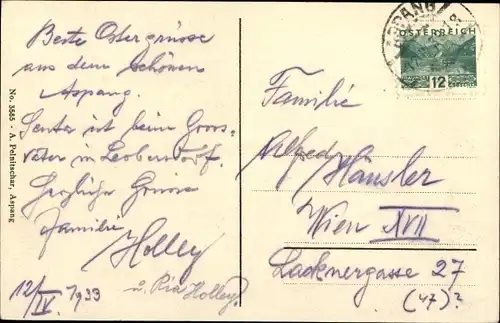 Beste Ostergrüsse
aus dem schönen
Aspang.
Senta ist beim Gross-
vater in Leobersdorf.
Herzliche Grüsse
Familie
Holley
12/IV. 1933
u. Pia Holley?
No. 3555 - A. Peinitschar, Aspang
ASPANG
ÖSTERREICH
12 GROSCHEN
Familie
Alfred
Häusler
Wien XVII
Lacknergasse 27
(47)?